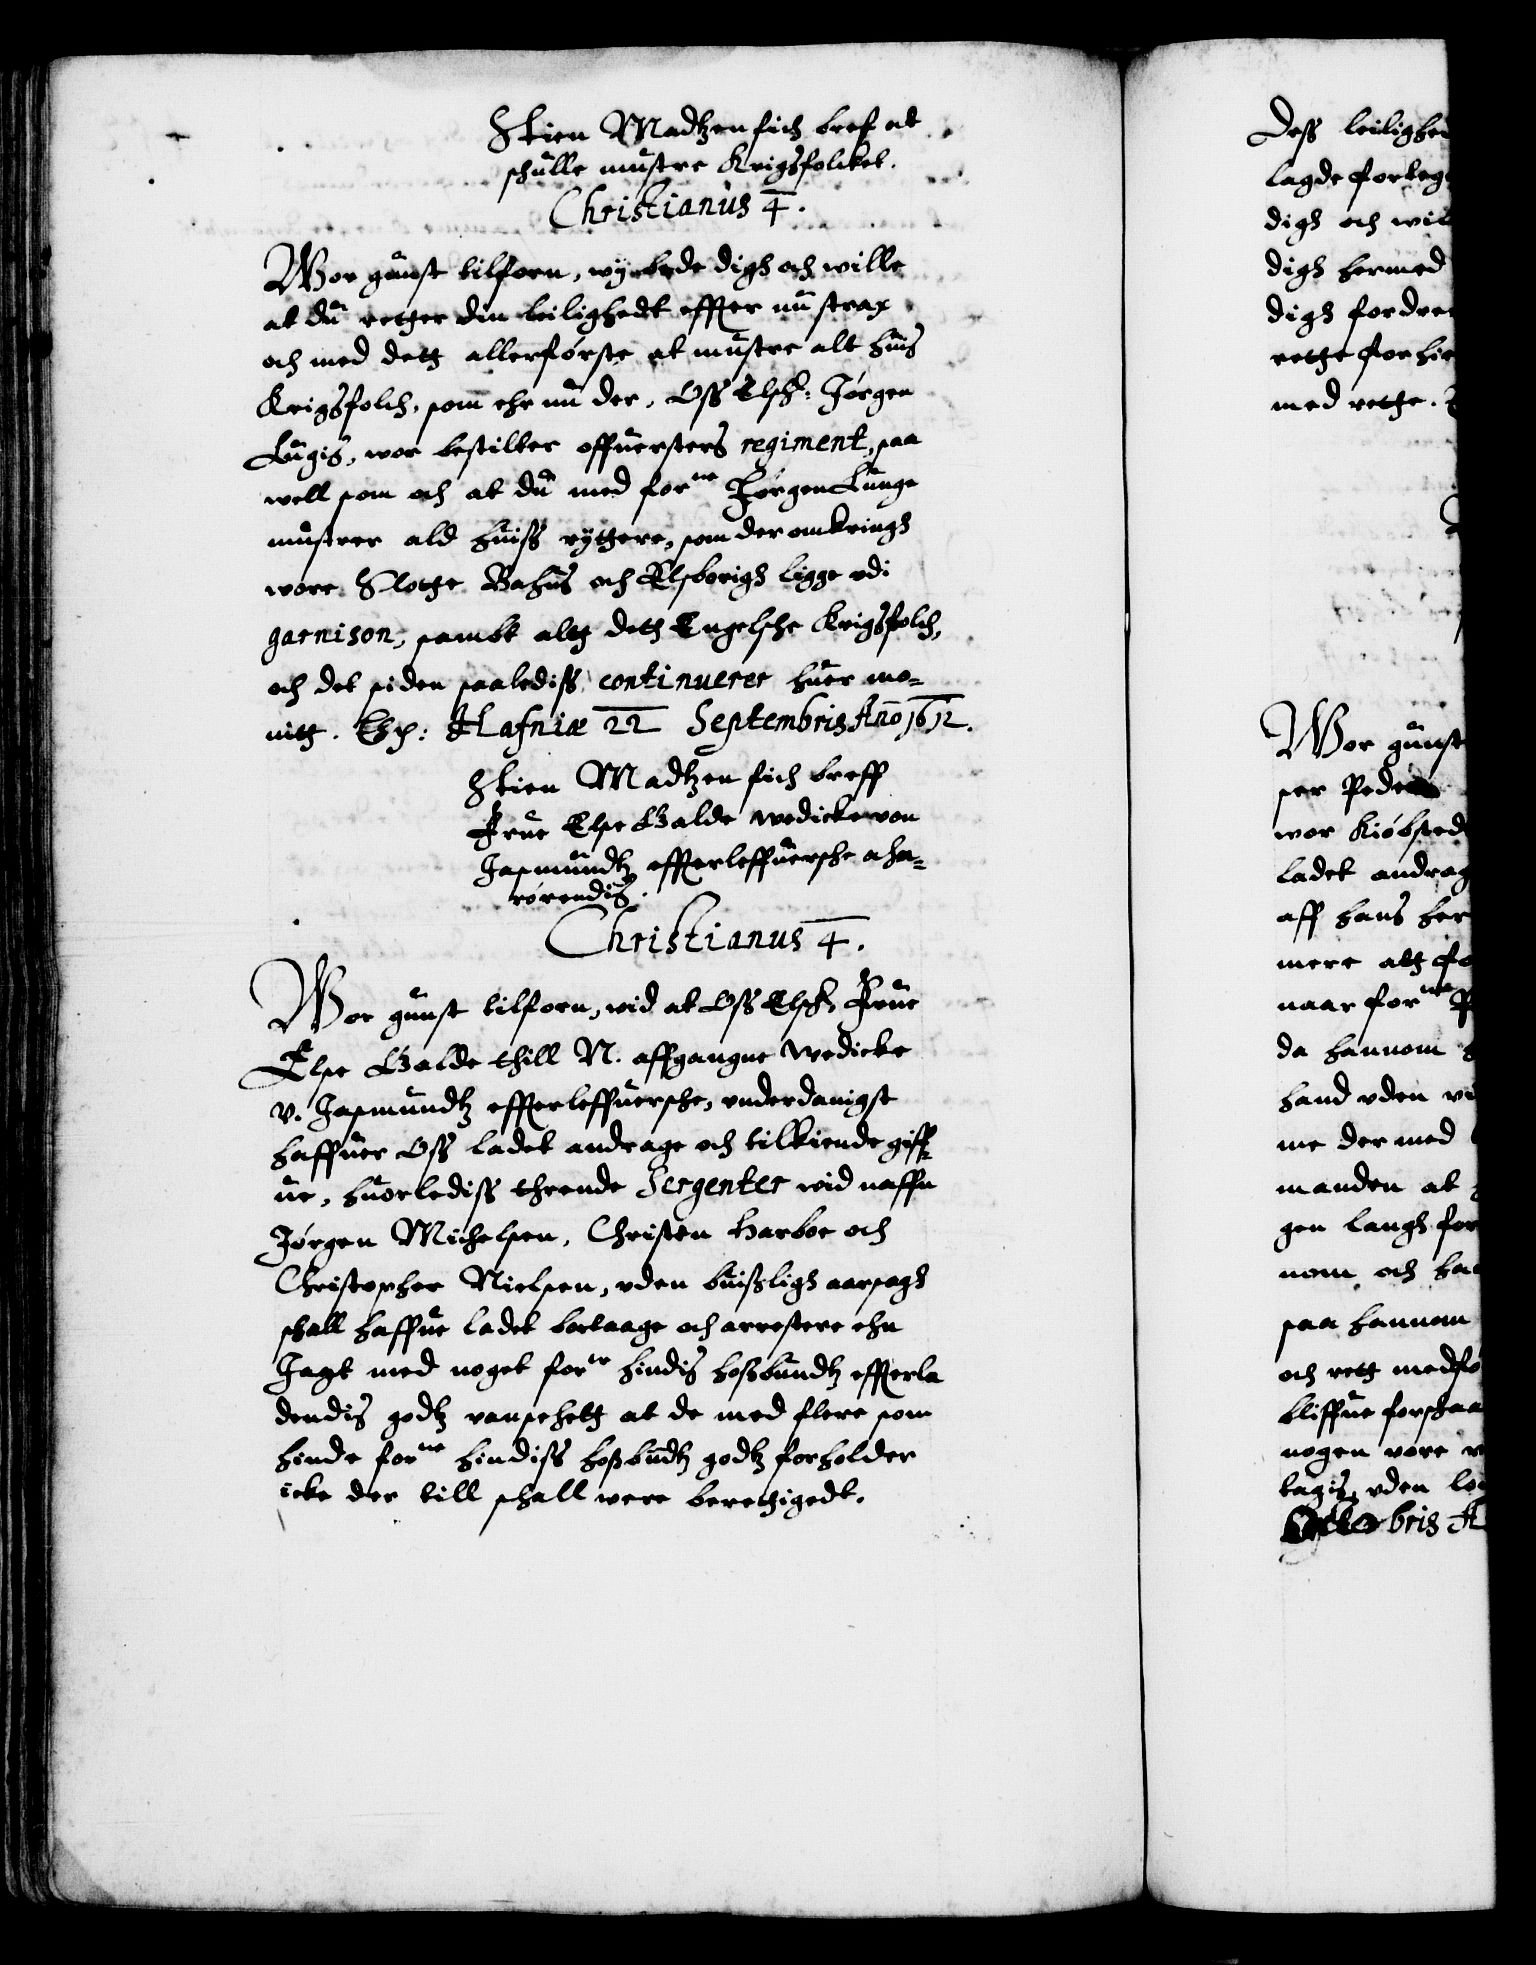 Stien Madtzen fich bref at
schulle mustre Krigsfolcket.
Christianus 4.
Wor gunst tilforn, wy bede digh och wille
at du retter din leilighedt effter nu strax
och med dett allerførste at mustre alt huis
Krigsfolch, som ehr under, Oss Elsch: Jørgen
Lugis, wor bestilter offuersters regiment, saa
well som och at du med forne Jørgen Lunge
mustrer ald huiss ryttere, som der omkringh
wore Slotte Bahus och Elsborigh ligge udi
garnison, sambt altt dett Engelsche Krigsfolch,
och det siden saalediss continuerer huer mo-
nitt. Ex: Hafniæ 22 Septembris Año 1612.
Stien Madtzen fich breff
Frue Else Galde Wedicke von
Jasmundtz effterleffuersche aha-
rørendis.
Christianus 4.
Wor gunst tilforn, wid at Oss Elsch. Frue
Else Galde thill N. affgangne Wedicke
v. Jasmundtz effterleffuersche, underdanigst
haffuer Oss ladet andrage och tilkiende giff-
ue, huorlediss thrende Sergenter wid naffn
Jørgen Michelsen, Christen Harboe och
Christopher Nielsen, uden buissligh aarsagh
schall haffue ladet borttage och arrestere ehn
Jagt med noget forne hindis hossbundtz effterla
dendis godtz uansehett at de med flere som
hinde forne hindiss hossbundtz godtz forholder
icke der till schall were berettigedt.
Dess
lagde
digh och
digh hermed
digh
rette
med rette.
Wor gunst
per
wor
ladet
aff hans
mere altt
naar forne
da hannom
hand uden
me der med
manden at
gen langh
nom, och
paa hannom
och rett
bliffue
nogen wore
tagis, uden